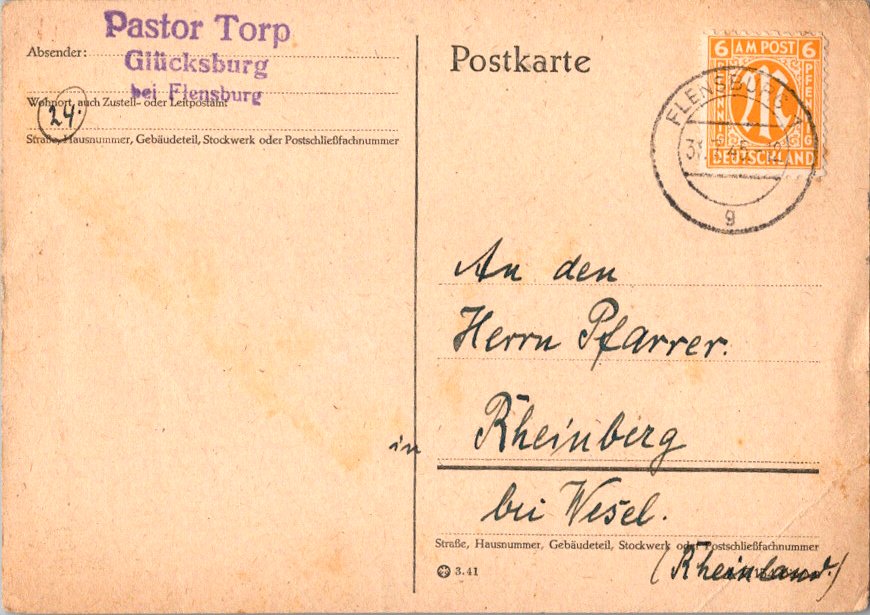 Pastor Torp
Glücksburg
bei Flensburg
Absender:
Wohnort, auch Zustell- oder Leitpostamt
24.
Straße, Hausnummer, Gebäudeteil, Stockwerk oder Postschließfachnummer
Postkarte
6 AM POST 6
PFENNIG
PFENNIG
DEUTSCHLAND
FLENSBURG
g
An den
Herrn Pfarrer.
in Rheinberg
bei Wesel.
Straße, Hausnummer, Gebäudeteil, Stockwerk oder Postschließfachnummer
(Rheinland.)
3.41